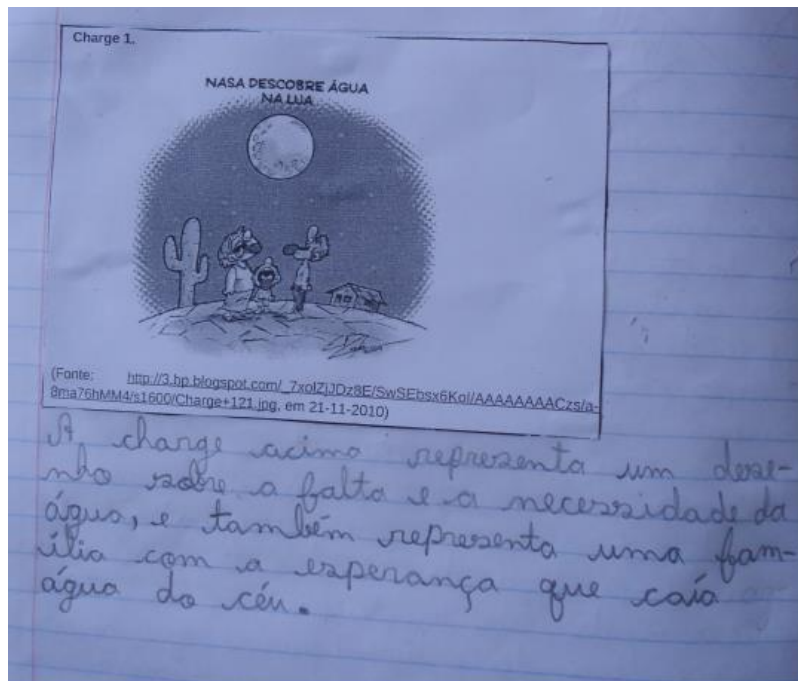 Charge 1.
NASA DESCOBRE ÁGUA
NA LUA
(Fonte: http://3.bp.blogspot.com/_7xolZjJDz8E/SwSEbsx6KoI/AAAAAAAACzs/a-
8ma76hMM4/s1600/Charge+121.jpg, em 21-11-2010)
A charge acima representa um dese-
nho sobre a falta e a necessidade da
água, e também representa uma fam-
ília com a esperança que caía
água do céu.